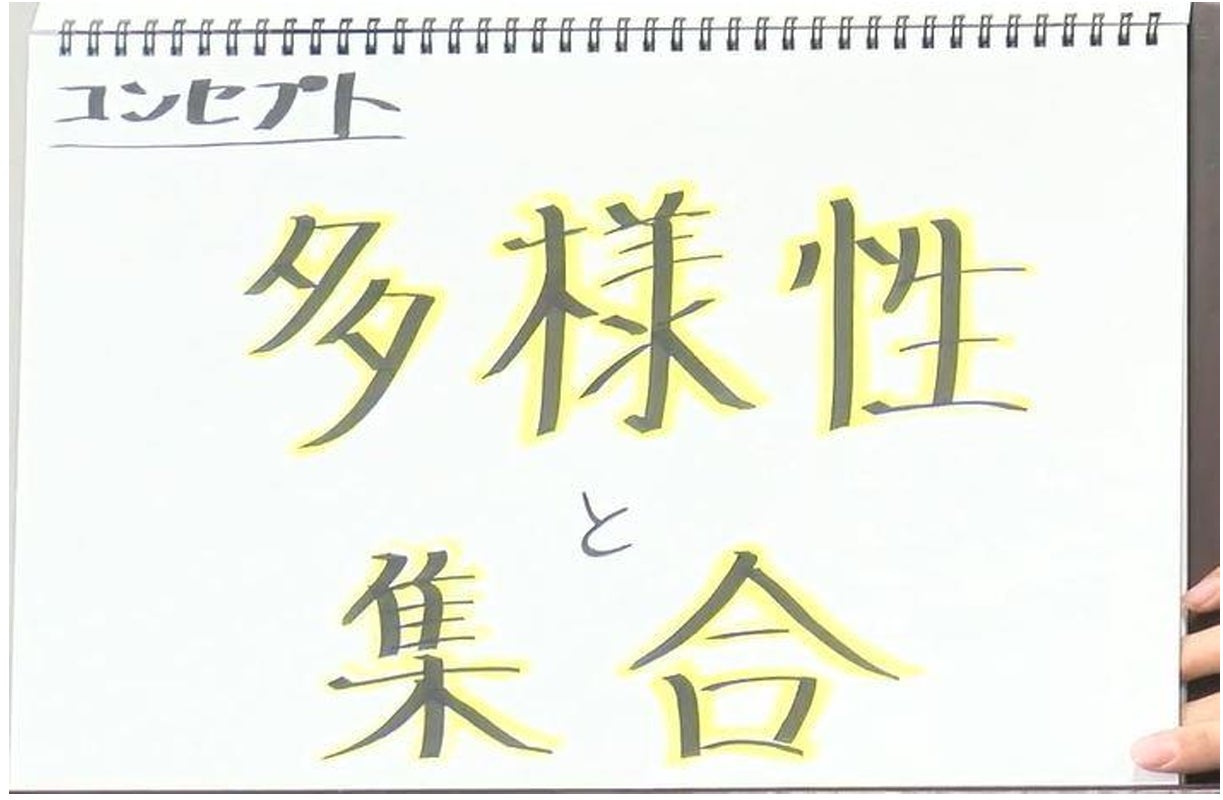 コンセプト
多様性
と
集合